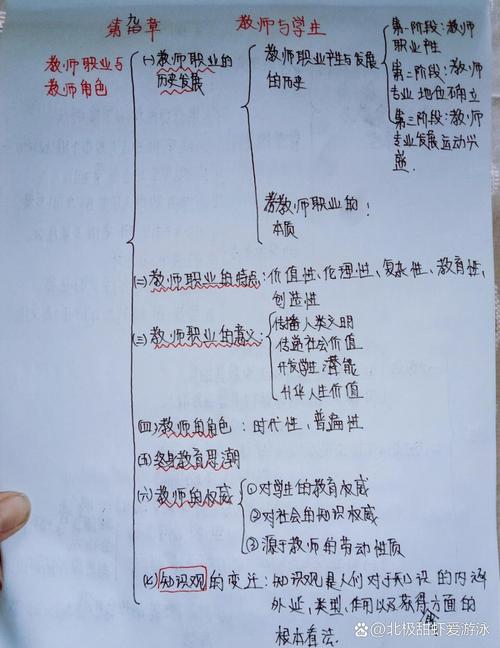 第九章 教师与学生
教师职业与
教师角色
(一)教师职业的
历史发展
教师职业产生与发展
的历史
第一阶段:教师
职业产生
第二阶段:教师
专业地位确立
第三阶段:教师
专业发展运动兴
盛.
教师职业的:
本质
(二)教师职业的特点:价值性、伦理性、复杂性、教育性、
创造性
(三)教师职业的意义:
传播人类文明
传递社会价值
开发学生潜能
升华人生价值
(四)教师的角色:时代性、普遍性
(五)终身教育思潮
(六)教师的权威
①对学生的教育权威
②对社会的知识权威
③源于教师的劳动性质
(七)知识观的变迁:知识观是人们对于知识的内涵
外延,类型,作用以及获得方面的
根本看法.
知乎 @北极甜虾爱游泳